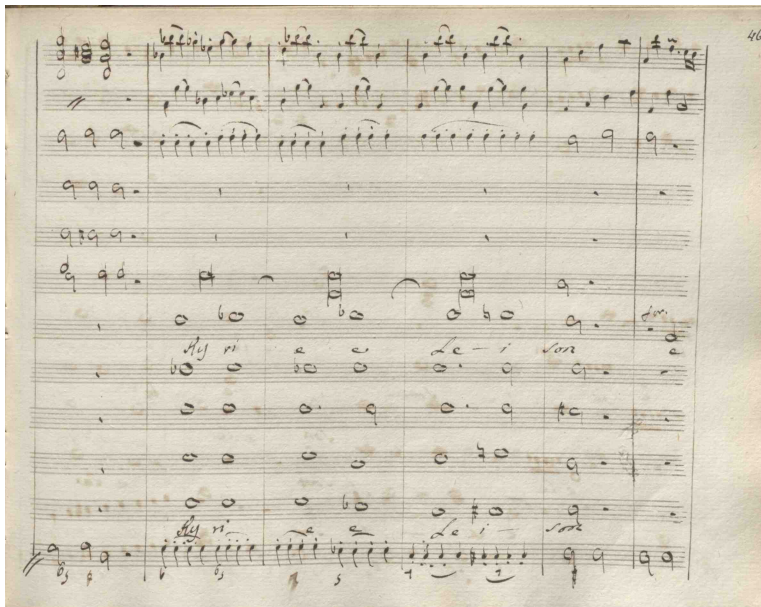 46
for.
Ky ri e e Le - i son e
Ky ri - e e Le i - son